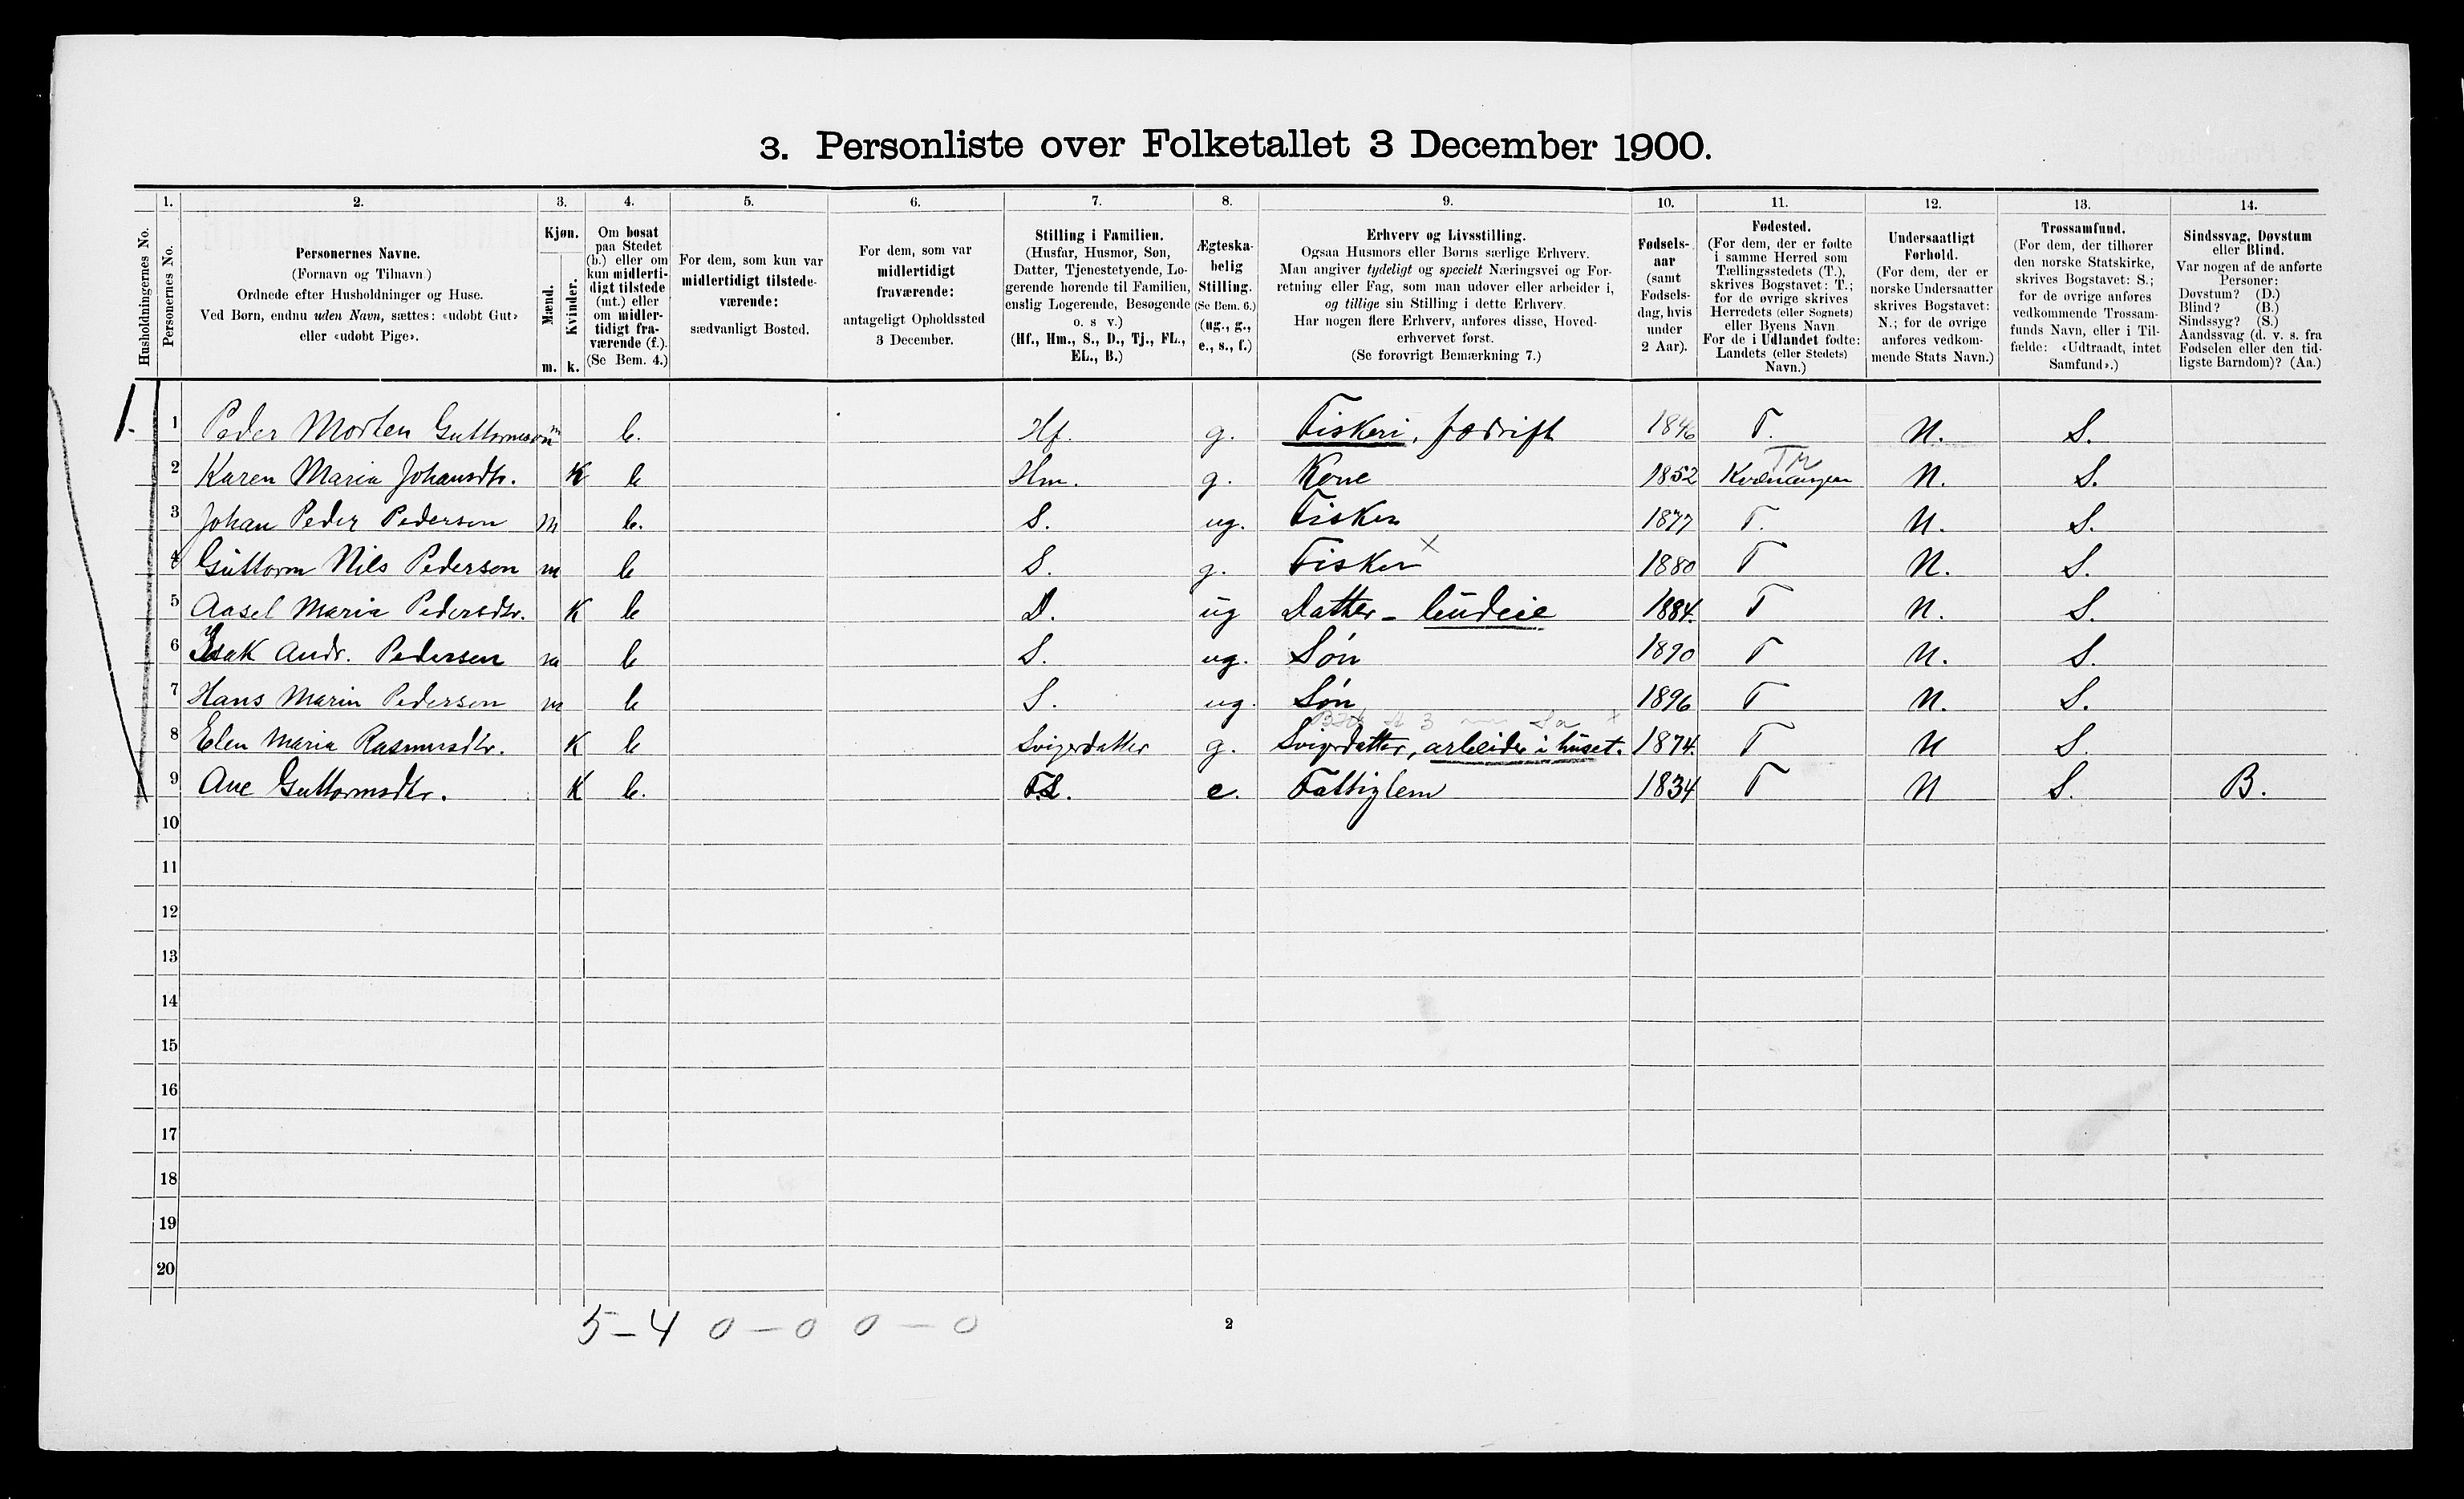 3. Personliste over Folketallet 3 December 1900.
1. 2. 3. 4. 5. 6. 7. 8. 9. 10. 11. 12. 13. 14.
Husholdningernes No.
Personernes No.
Personernes Navne.
(Fornavn og Tilnavn)
Ordnede efter Husholdninger og Huse.
Ved Børn, endnu uden Navn, sættes: «udøbt Gut»
eller «udøbt Pige».
Kjøn.
Mænd.
Kvinder.
m. k.
Om bosat
paa Stedet
(b.) eller om
kun midlerti-
digt tilstede
(mt.) eller
om midler-
tidigt fra-
værende (f.).
(Se Bem. 4.)
For dem, som kun var
midlertidigt tilstede-
værende:
sædvanligt Bosted.
For dem, som var
midlertidigt
fraværende:
antageligt Opholdssted
3 December.
Stilling i Familien.
(Husfar, Husmor, Søn,
Datter, Tjenestetyende, Lo-
gerende hørende til Familien,
enslig Logerende, Besøgende
o. s v.)
(Hf., Hm., S., D., Tj., FL.,
EL., B.)
Ægteska-
belig
Stilling.
(Se Bem. 6.)
(ug., g.,
e., s., f.)
Erhverv og Livsstilling.
Ogsaa Husmors eller Børns særlige Erhverv.
Man angiver tydeligt og specielt Næringsvei og For-
retning eller Fag, som man udøver eller arbeider i,
og tillige sin Stilling i dette Erhverv.
Har nogen flere Erhverv, anføres disse, Hoved-
erhvervet først.
(Se forøvrigt Bemærkning 7.)
Fødsels-
aar
(samt
Fødsels-
dag, hvis
under
2 Aar).
Fødested.
(For dem, der er fødte
i samme Herred som
Tællingsstedets (T.),
skrives Bogstavet: T.;
for de øvrige skrives
Herredets (eller Sognets)
eller Byens Navn
For de i Udlandet fødte:
Landets (eller Stedets)
Navn.)
Undersaatligt
Forhold.
(For dem, der er
norske Undersaatter
skrives Bogstavet:
N.; for de øvrige
anføres vedkom-
mende Stats Navn.)
Trossamfund.
(For dem, der tilhører
den norske Statskirke,
skrives Bogstavet: S.;
for de øvrige anføres
vedkommende Trossam-
funds Navn, eller i Til-
fælde: «Udtraadt, intet
Samfund».)
Sindssvag, Døvstum
eller Blind.
Var nogen af de anførte
Personer:
Døvstum? (D.)
Blind? (B.)
Sindssyg? (S.)
Aandssvag (d. v. s. fra
Fødselen eller den tid-
ligste Barndom)? (Aa.)
1. 1 Peder Morten Guttormson m b. Hf. g. Fiskeri, jordrift 1846 T. N. S.
2 Karen Maria Johansdtr. K b Hm. g. Kone 1852 Kvænangen N. S.
3 Johan Peder Pedersen m b. S. ug. Fisker 1877 T. N. S.
4 Guttorm Nils Pedersen m b S. g. Fisker x 1880 T N. S.
5 Aasel Maria Pedersdtr. K b D. ug Datter - budeie 1884. T N. S.
6 Isak Andr. Pedersen m b S. ug. Søn 1890 T N. S.
7 Hans Marin Pedersen m b S. ug. Søn 1896 T N. S.
8 Elen Maria Rasmusdtr. K b Svigerdatter g. Svigerdatter, arbeider i huset. 1874. T N S.
9 Ane Guttormsdtr. K b. F.L. e. Fattiglem 1834 T N S. B.
10
11
12
13
14
15
16
17
18
19
20
5-4 0-0 0-0
2